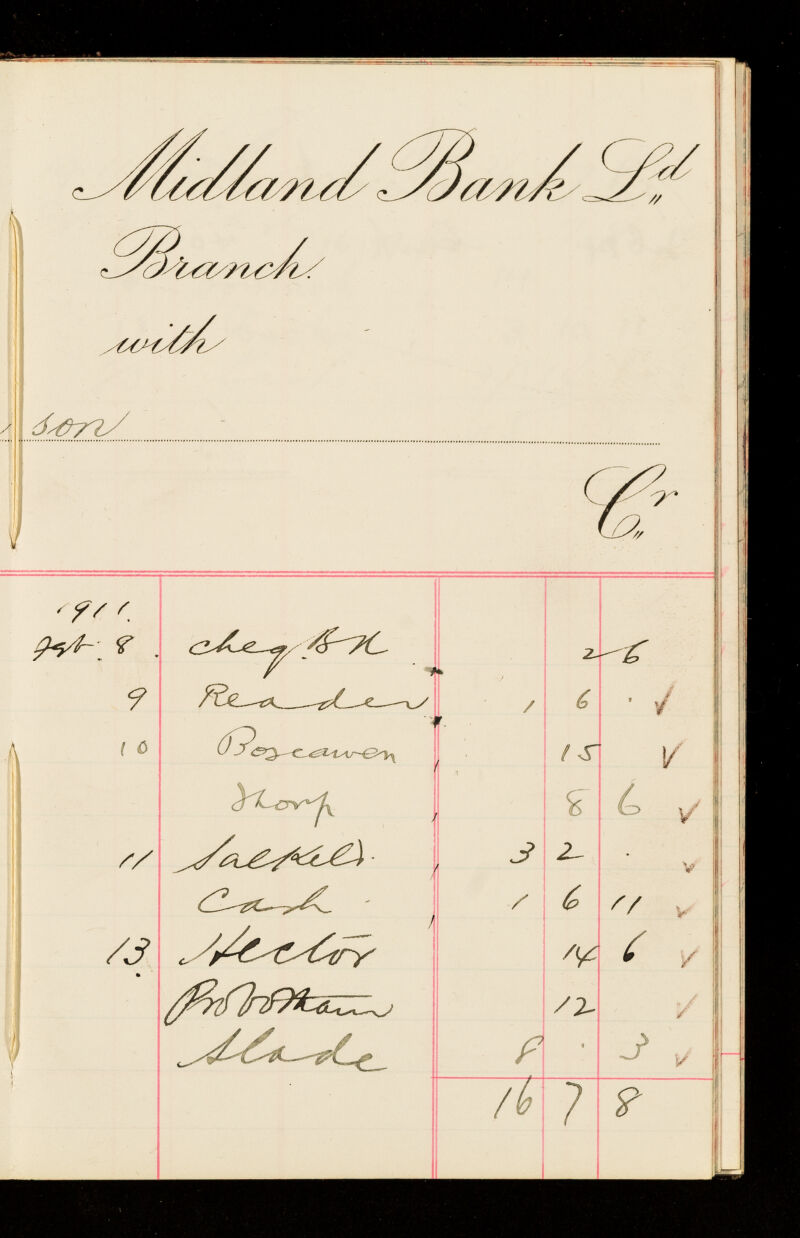 Midland Bank Ld
Branch.
with
son
Cr
1911.
8. cheq. Bk 2 6
9 Reader 1 6 .
10 Boscawen 15
Thorp 8 6
11 Salkeld. 3 2 .
Cash 1 6 11
13. Hector 14 6
Probotham 12
Slade 8 . 3
16 7 8